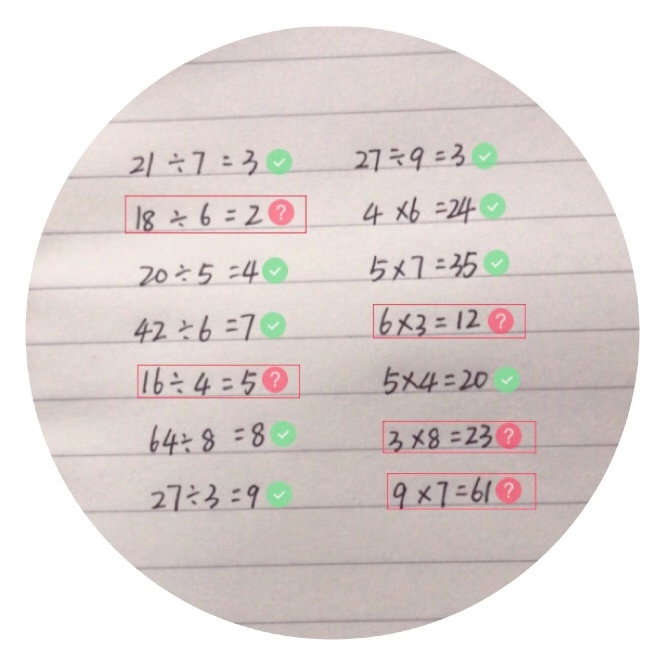 21÷7=3
18÷6=2
20÷5=4
42÷6=7
16÷4=5
64÷8=8
27÷3=9
27÷9=3
4×6=24
5×7=35
6×3=12
5×4=20
3×8=23
9×7=61